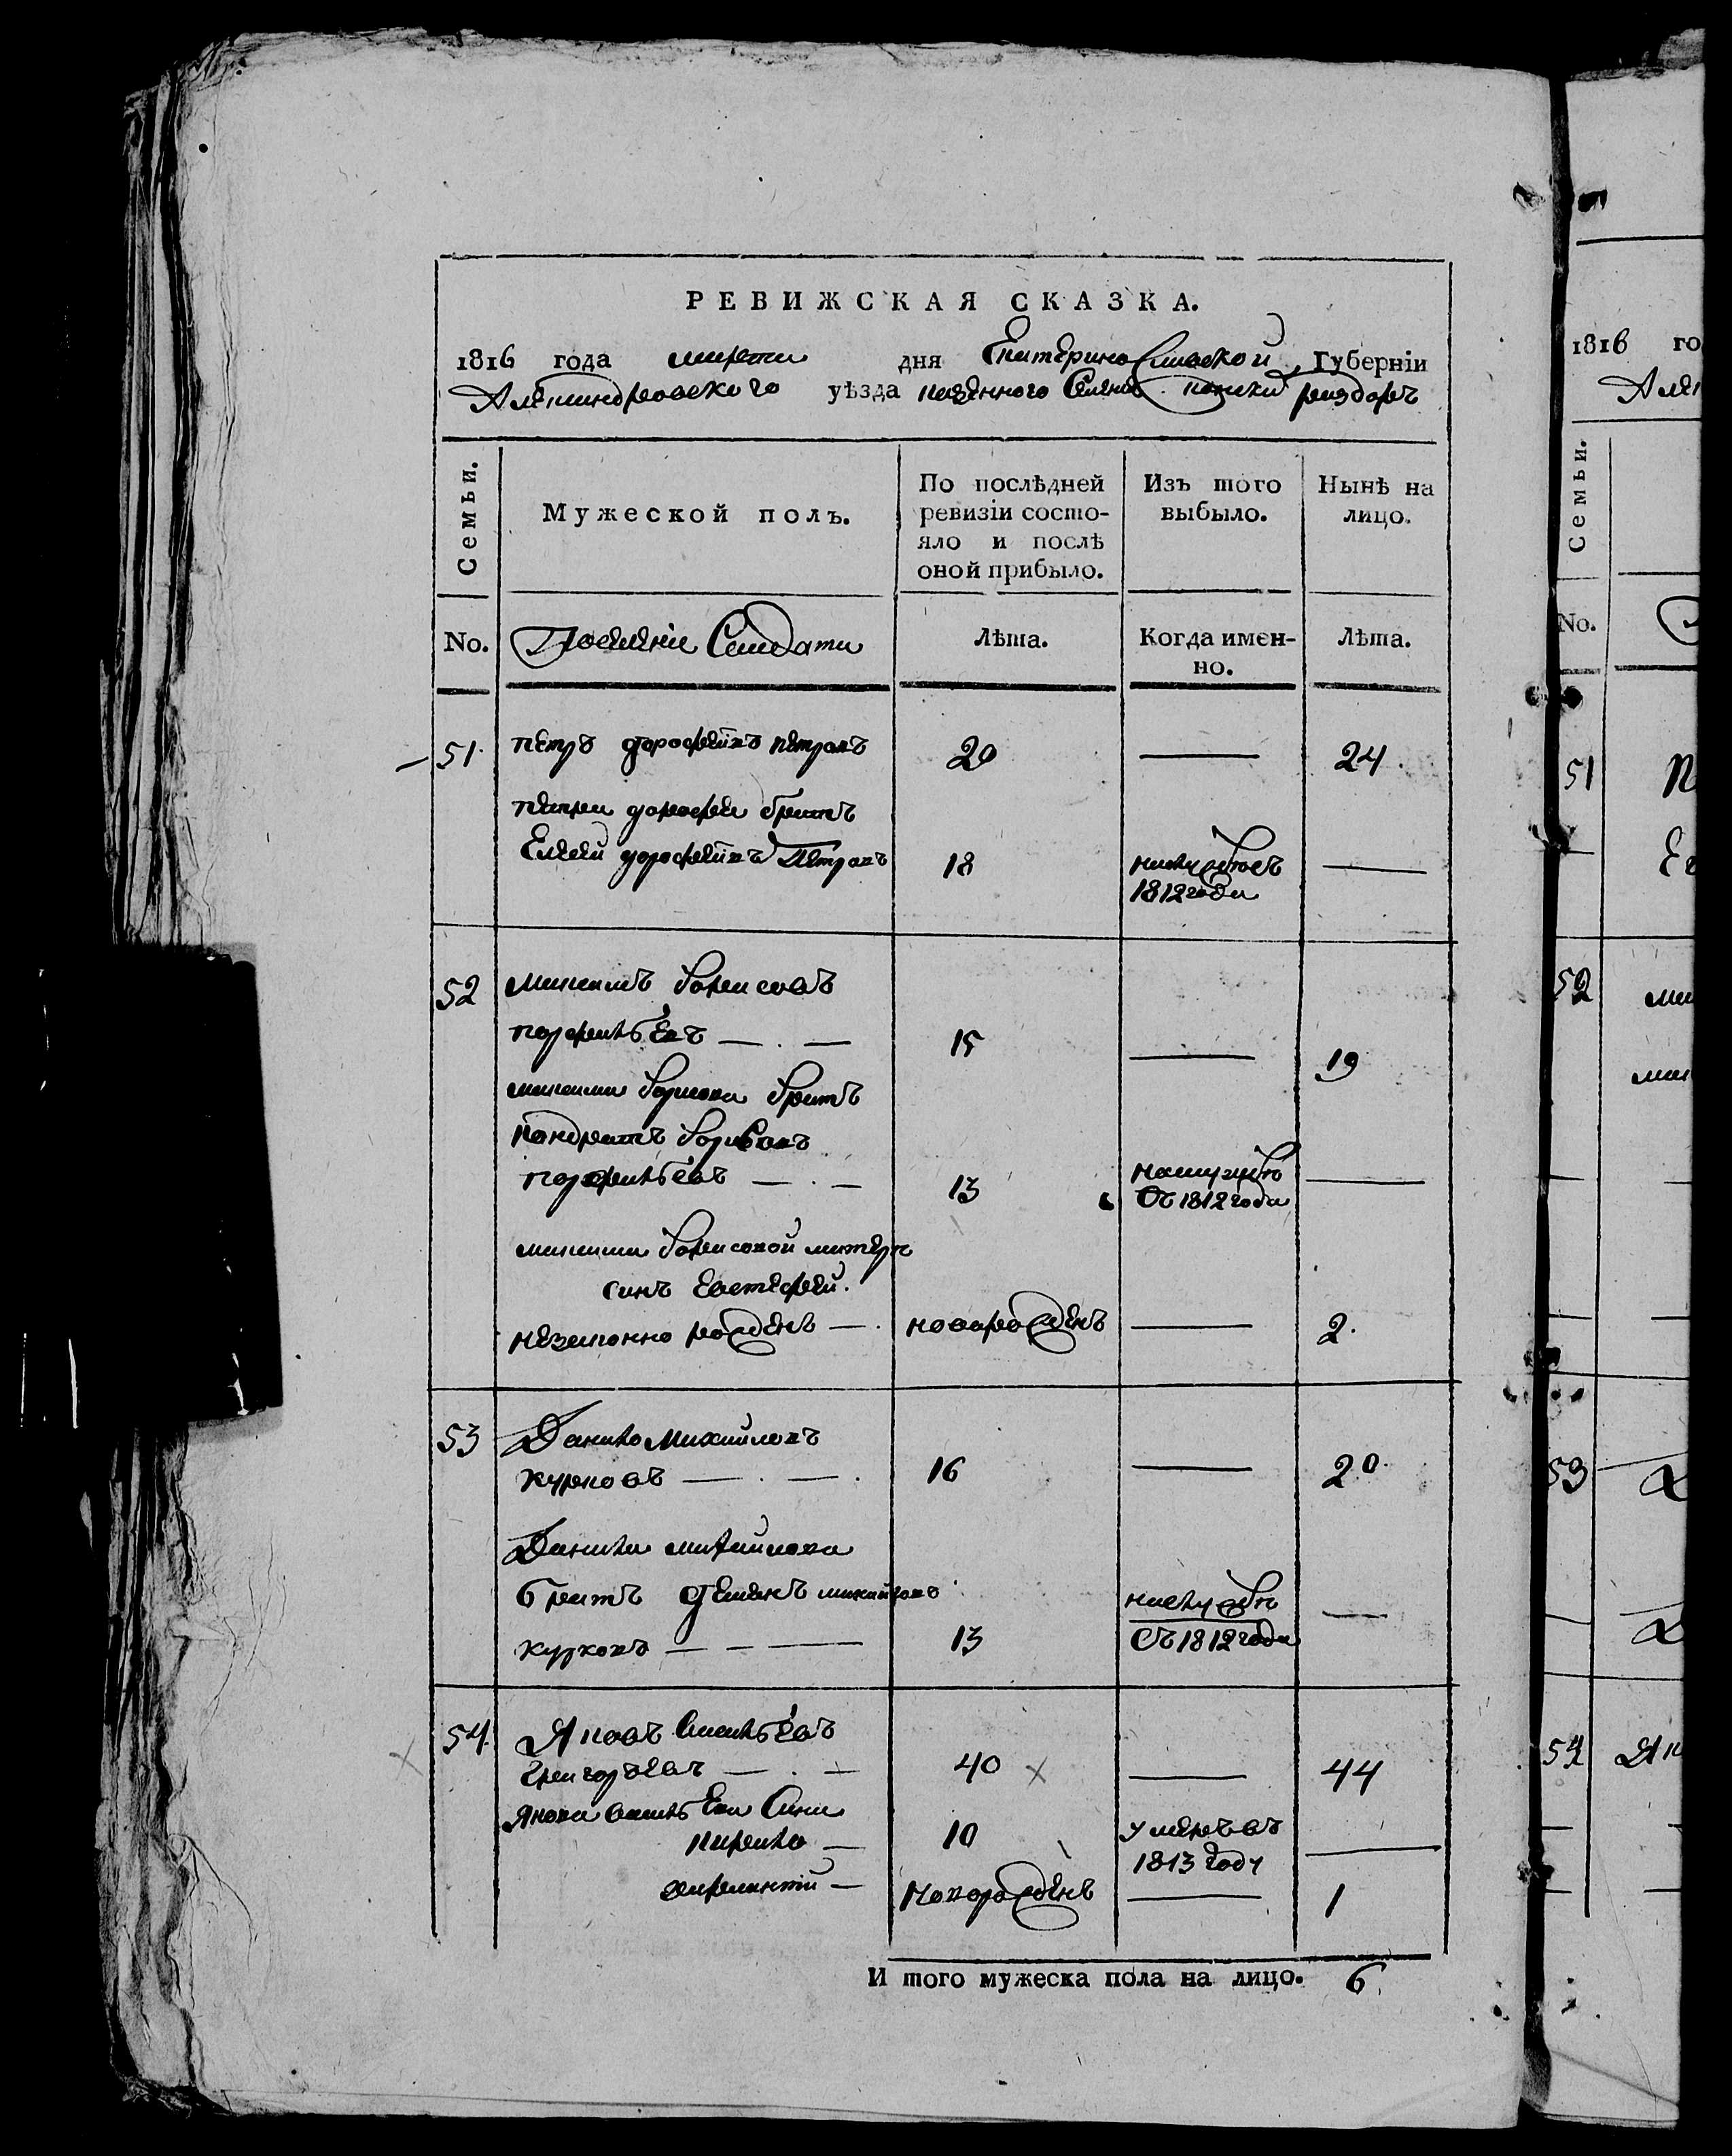 РЕВИЖСКАЯ СКАЗКА.
1816 года марта дня Екатеринославской Губерніи
Александровского уѣзда казенного Селения раздоръ
Семьи.
Мужеской полъ.
По послѣдней ревизіи состо-
яло и послѣ
оной прибыло.
Изъ того
выбыло.
Нынѣ на
лицо.
No.
Лѣта.
Когда имен-
но.
Лѣта.
51
Петръ дорофеивъ петровъ
20
24
петра дорофеи братъ
Елисеи дорофеивъ Петровъ
18
1812 года
52
максимъ борисовъ
порфильевъ
15
19
максима борисова братъ
кондратъ борисовъ
порфильевъ
13
на службѣ
Съ 1812 года
максима борисовой матери
синъ Евстефеи.
незаконно рожденъ
новорожденъ
2.
53
Данило Михаиловъ
курковъ
16
20
Данила михаилова
братъ демянъ михаиловъ
курковъ
13
на службѣ
Съ 1812 года
54
Яковъ Василь'евъ
Григорьевъ
40
44
Якова Василь'ева Сини
кирило
10
умеръ въ
1813 году
новорожденъ
1
И того мужеска пола на лицо. 6
1816 го
Семьи.
No.
51
52
53
54